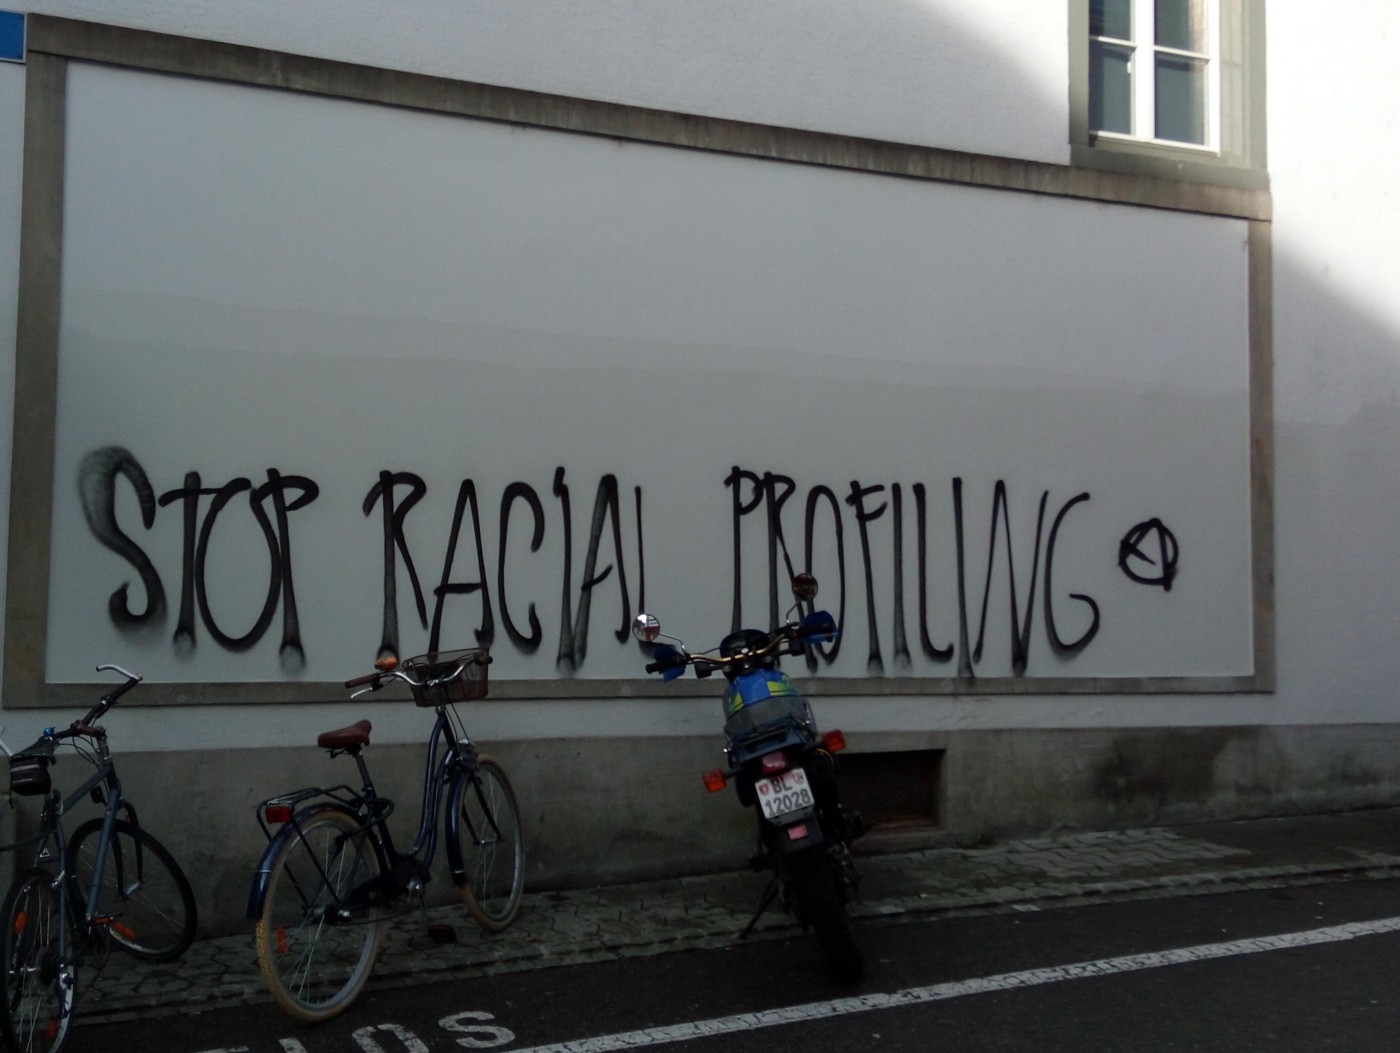 STOP RACIAL PROFILING Ⓐ
BL
12028
ELOS